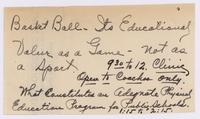 Basket Ball - Its Educational
Value as a Game - Not as
a Sport
9 30 to 12. Clinic
Open to Coaches Only.
What Constitutes an Adequate Physical
Education Program for Public Schools.
1:15 to 2:15.